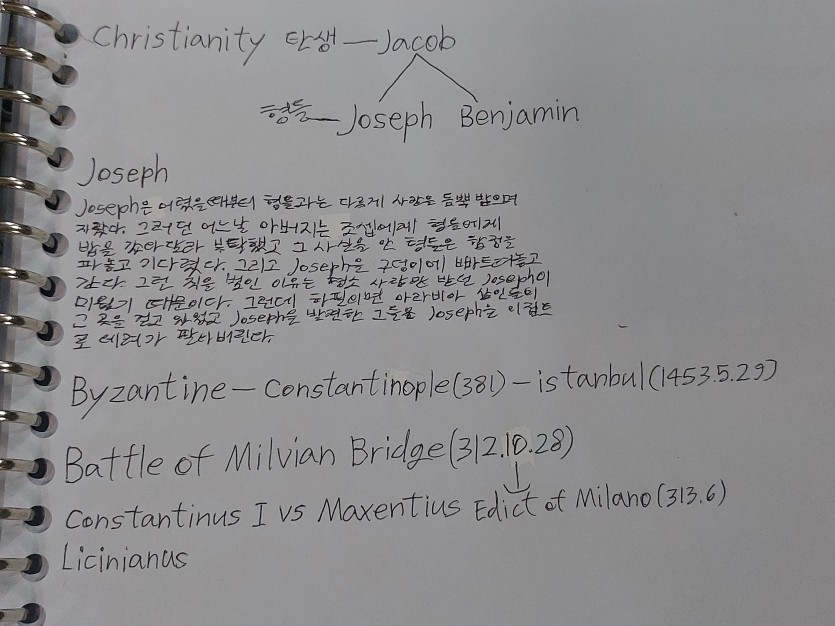 Christianity 탄생 — Jacob
형들 — Joseph Benjamin
Joseph
Joseph은 어렸을때부터 형들과는 다르게 사랑을 듬뿍 받으며
자랐다. 그러던 어느날 아버지는 조셉에게 형들에게
밥을 갖아달라 부탁했고 그 사실을 안 형들은 함정을
파놓고 기다렸다. 그리고 Joseph을 구덩이에 빠트려놓고
갔다. 그런 짓을 벌인 이유는 평소 사랑만 받던 Joseph이
미웠기 때문이다. 그런데 하필이면 아라비아 상인들이
그 곳을 걷고 있었고 Joseph을 발견한 그들은 Joseph을 이집트
로 데려가 팔아버린다.
Byzantine — Constantinople(381) — istanbul(1453.5.29)
Battle of Milvian Bridge(312.10.28)
Constantinus I vs Maxentius Edict of Milano(313.6)
Licinianus